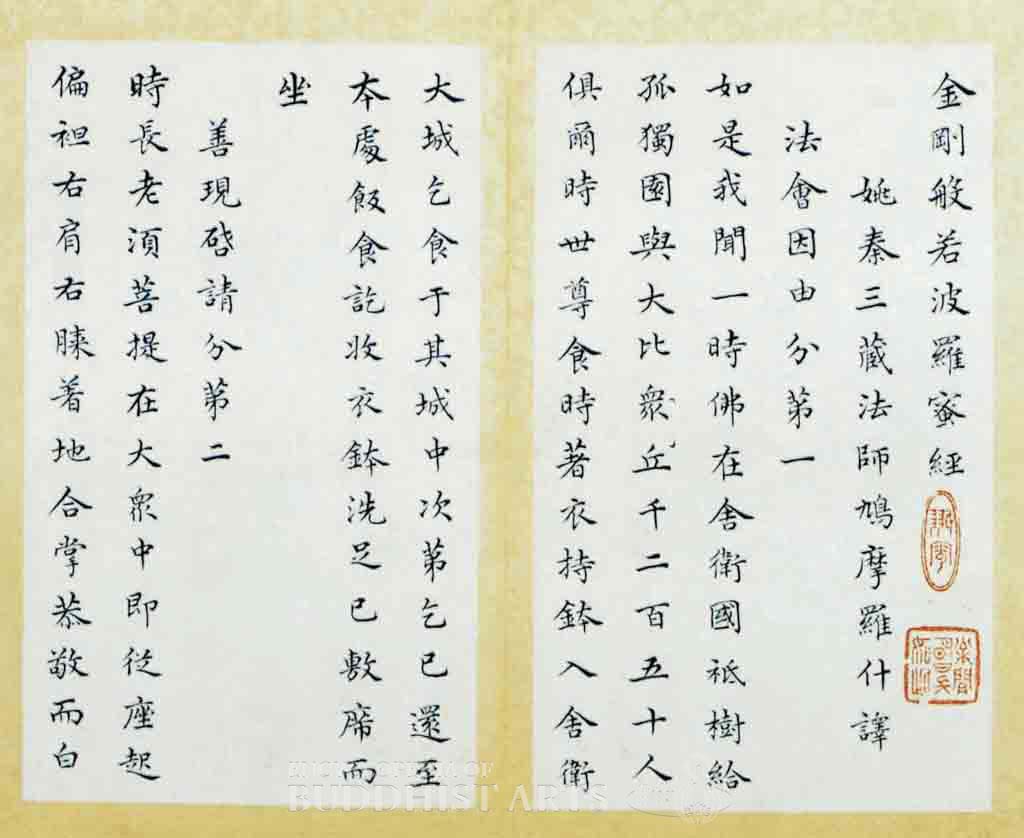 金剛般若波羅蜜經
姚秦三藏法師鳩摩羅什譯
法會因由分第一
如是我聞一時佛在舍衛國祇樹給
孤獨園與大比衆丘千二百五十人
俱爾時世尊食時著衣持鉢入舍衛
大城乞食于其城中次第乞已還至
本處飯食訖收衣鉢洗足已敷席而
坐
善現啓請分第二
時長老須菩提在大衆中即從座起
偏袒右肩右膝着地合掌恭敬而白
ENCYCLOPEDIA OF
BUDDHIST ARTS